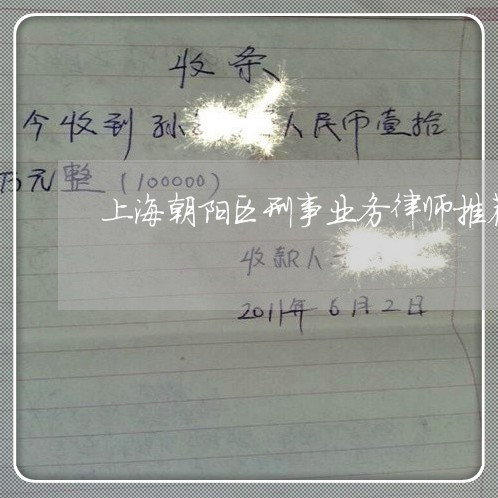 收条
今收到孙 人民币壹拾
万元整(100000)
上海朝阳区刑事业务律师推
收款人
2011年6月2日